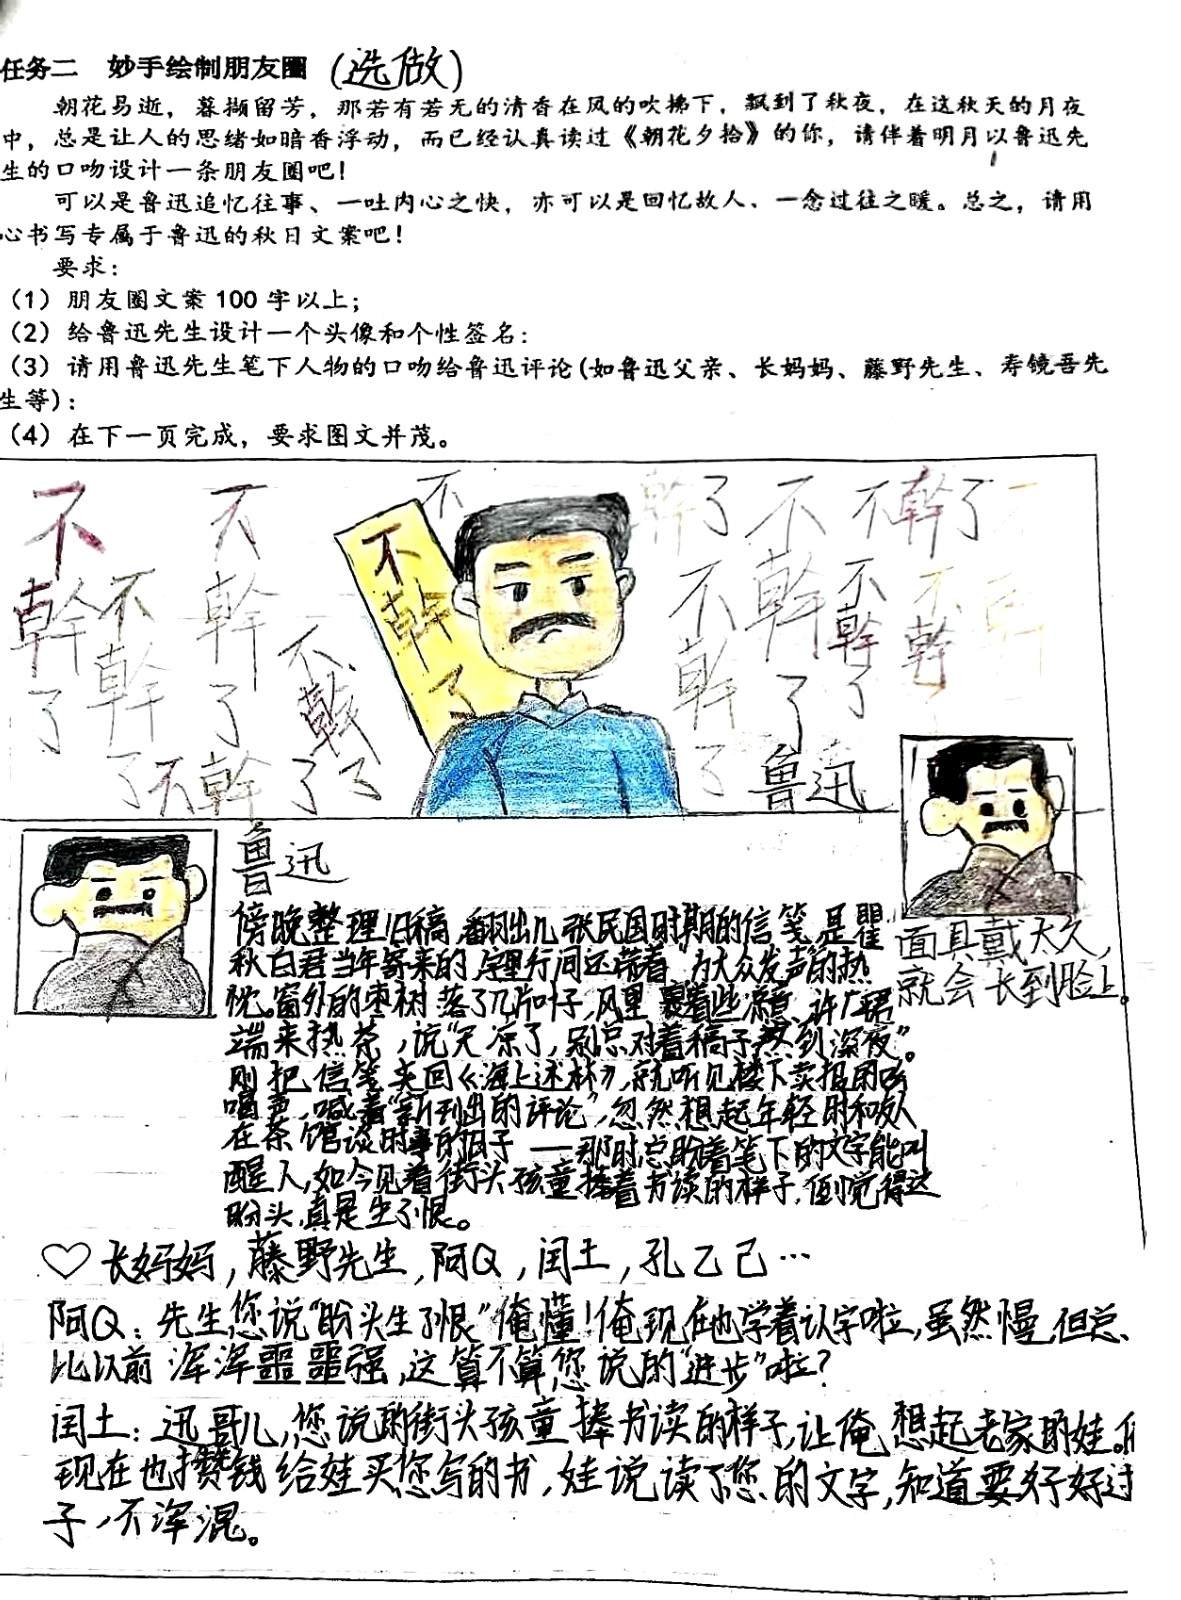 任务二 妙手绘制朋友圈 (选做)
朝花易逝，暮撷留芳，那若有若无的清香在风的吹拂下，飘到了秋夜，在这秋天的月夜
中，总是让人的思绪如暗香浮动，而已经认真读过《朝花夕拾》的你，请伴着明月以鲁迅先
生的口吻设计一条朋友圈吧！
可以是鲁迅追忆往事、一吐内心之快，亦可以是回忆故人、一念过往之暖。总之，请用
心书写专属于鲁迅的秋日文案吧！
要求：
（1）朋友圈文案 100 字以上；
（2）给鲁迅先生设计一个头像和个性签名：
（3）请用鲁迅先生笔下人物的口吻给鲁迅评论(如鲁迅父亲、长妈妈、藤野先生、寿镜吾先
生等)：
（4）在下一页完成，要求图文并茂。
不幹了
不幹了
不幹了
不幹了
不幹了
不幹了
不
幹了
不幹了
不幹了
不幹了
不幹了
不幹了
鲁迅
面具戴太久，
就会长到脸上。
鲁迅
傍晚整理旧稿，翻出几张民国时期的信笺，是瞿
秋白君当年寄来的，字里行间还带着"为大众发声"的热
忱。窗外的枣树落了几片叶子，风里裹着些凉意，许广平
端来热茶，说"天凉了，别总对着稿子熬到深夜"。
刚把信笺夹回《海上述林》，就听见楼下卖报的吆
喝声，喊着"新刊出的评论"，忽然想起年轻时和友人
在茶馆谈时事的日子——那时总盼着笔下的文字能叫
醒人，如今见着街头孩童捧着书读的样子，倒觉得这
盼头，真是生了根。
♡长妈妈，藤野先生，阿Q，闰土，孔乙己…
阿Q：先生您说"盼头生了根"俺懂！俺现在也学着认字啦，虽然慢，但总
比以前浑浑噩噩强，这算不算您说的"进步"啦？
闰土：迅哥儿，您说的街头孩童捧书读的样子，让俺想起老家的娃。
现在也攒钱给娃买您写的书，娃说读了您的文字，知道要好好过
子，不浑混。